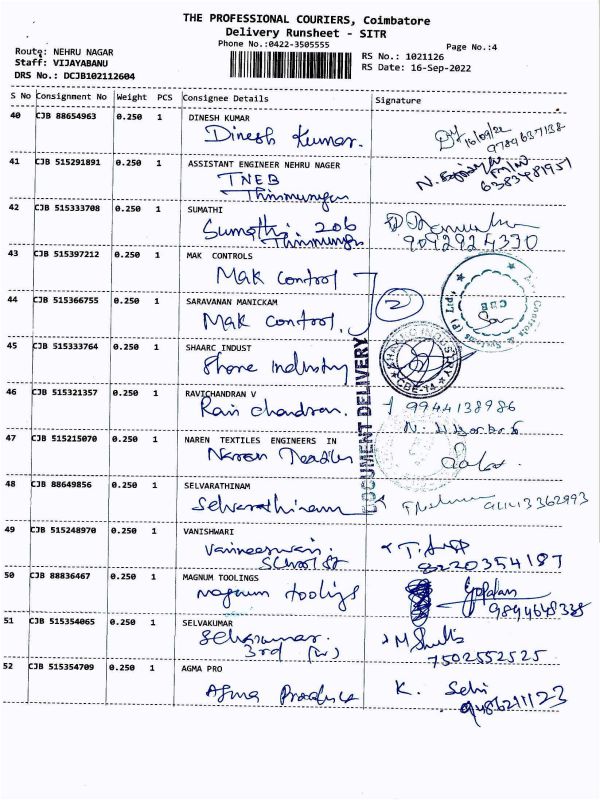 THE PROFESSIONAL COURIERS, Coimbatore
Delivery Runsheet - SITR
Phone No.:0422-3505555
Page No.:4
Route: NEHRU NAGAR
Staff: VIJAYABANU
DRS No.: DCJB102112604
RS No.: 1021126
RS Date: 16-Sep-2022
S No Consignment No Weight PCS Consignee Details Signature
40 CJB 88654963 0.250 1 DINESH KUMAR
Dinesh Kumar. 16/09/22
9789637138
41 CJB 515291891 0.250 1 ASSISTANT ENGINEER NEHRU NAGER
TNEB
6383481937
42 CJB 515333708 0.250 1 SUMATHI
Sumathi. 206
9042924330
43 CJB 515397212 0.250 1 MAK CONTROLS
Mak control
44 CJB 515366755 0.250 1 SARAVANAN MANICKAM
Mak control. 2
Controls & Systems (P) Ltd
CBE
45 CJB 515333764 0.250 1 SHAARC INDUST
Industry
CBE-14
DOCUMENT DELIVERY
46 CJB 515321357 0.250 1 RAVICHANDRAN V
Ravi chandran. 9944138986
47 CJB 515215070 0.250 1 NAREN TEXTILES ENGINEERS IN
Naren
48 CJB 88649856 0.250 1 SELVARATHINAM
Selvarathinam
49 CJB 515248970 0.250 1 VANISHWARI
School St 8220354187
50 CJB 88836467 0.250 1 MAGNUM TOOLINGS
Magnum toolings Gopalan
51 CJB 515354065 0.250 1 SELVAKUMAR
Selvakumar.
3rd (w) 7502552525
52 CJB 515354709 0.250 1 AGMA PRO
Agma K. Selvi
9486211123